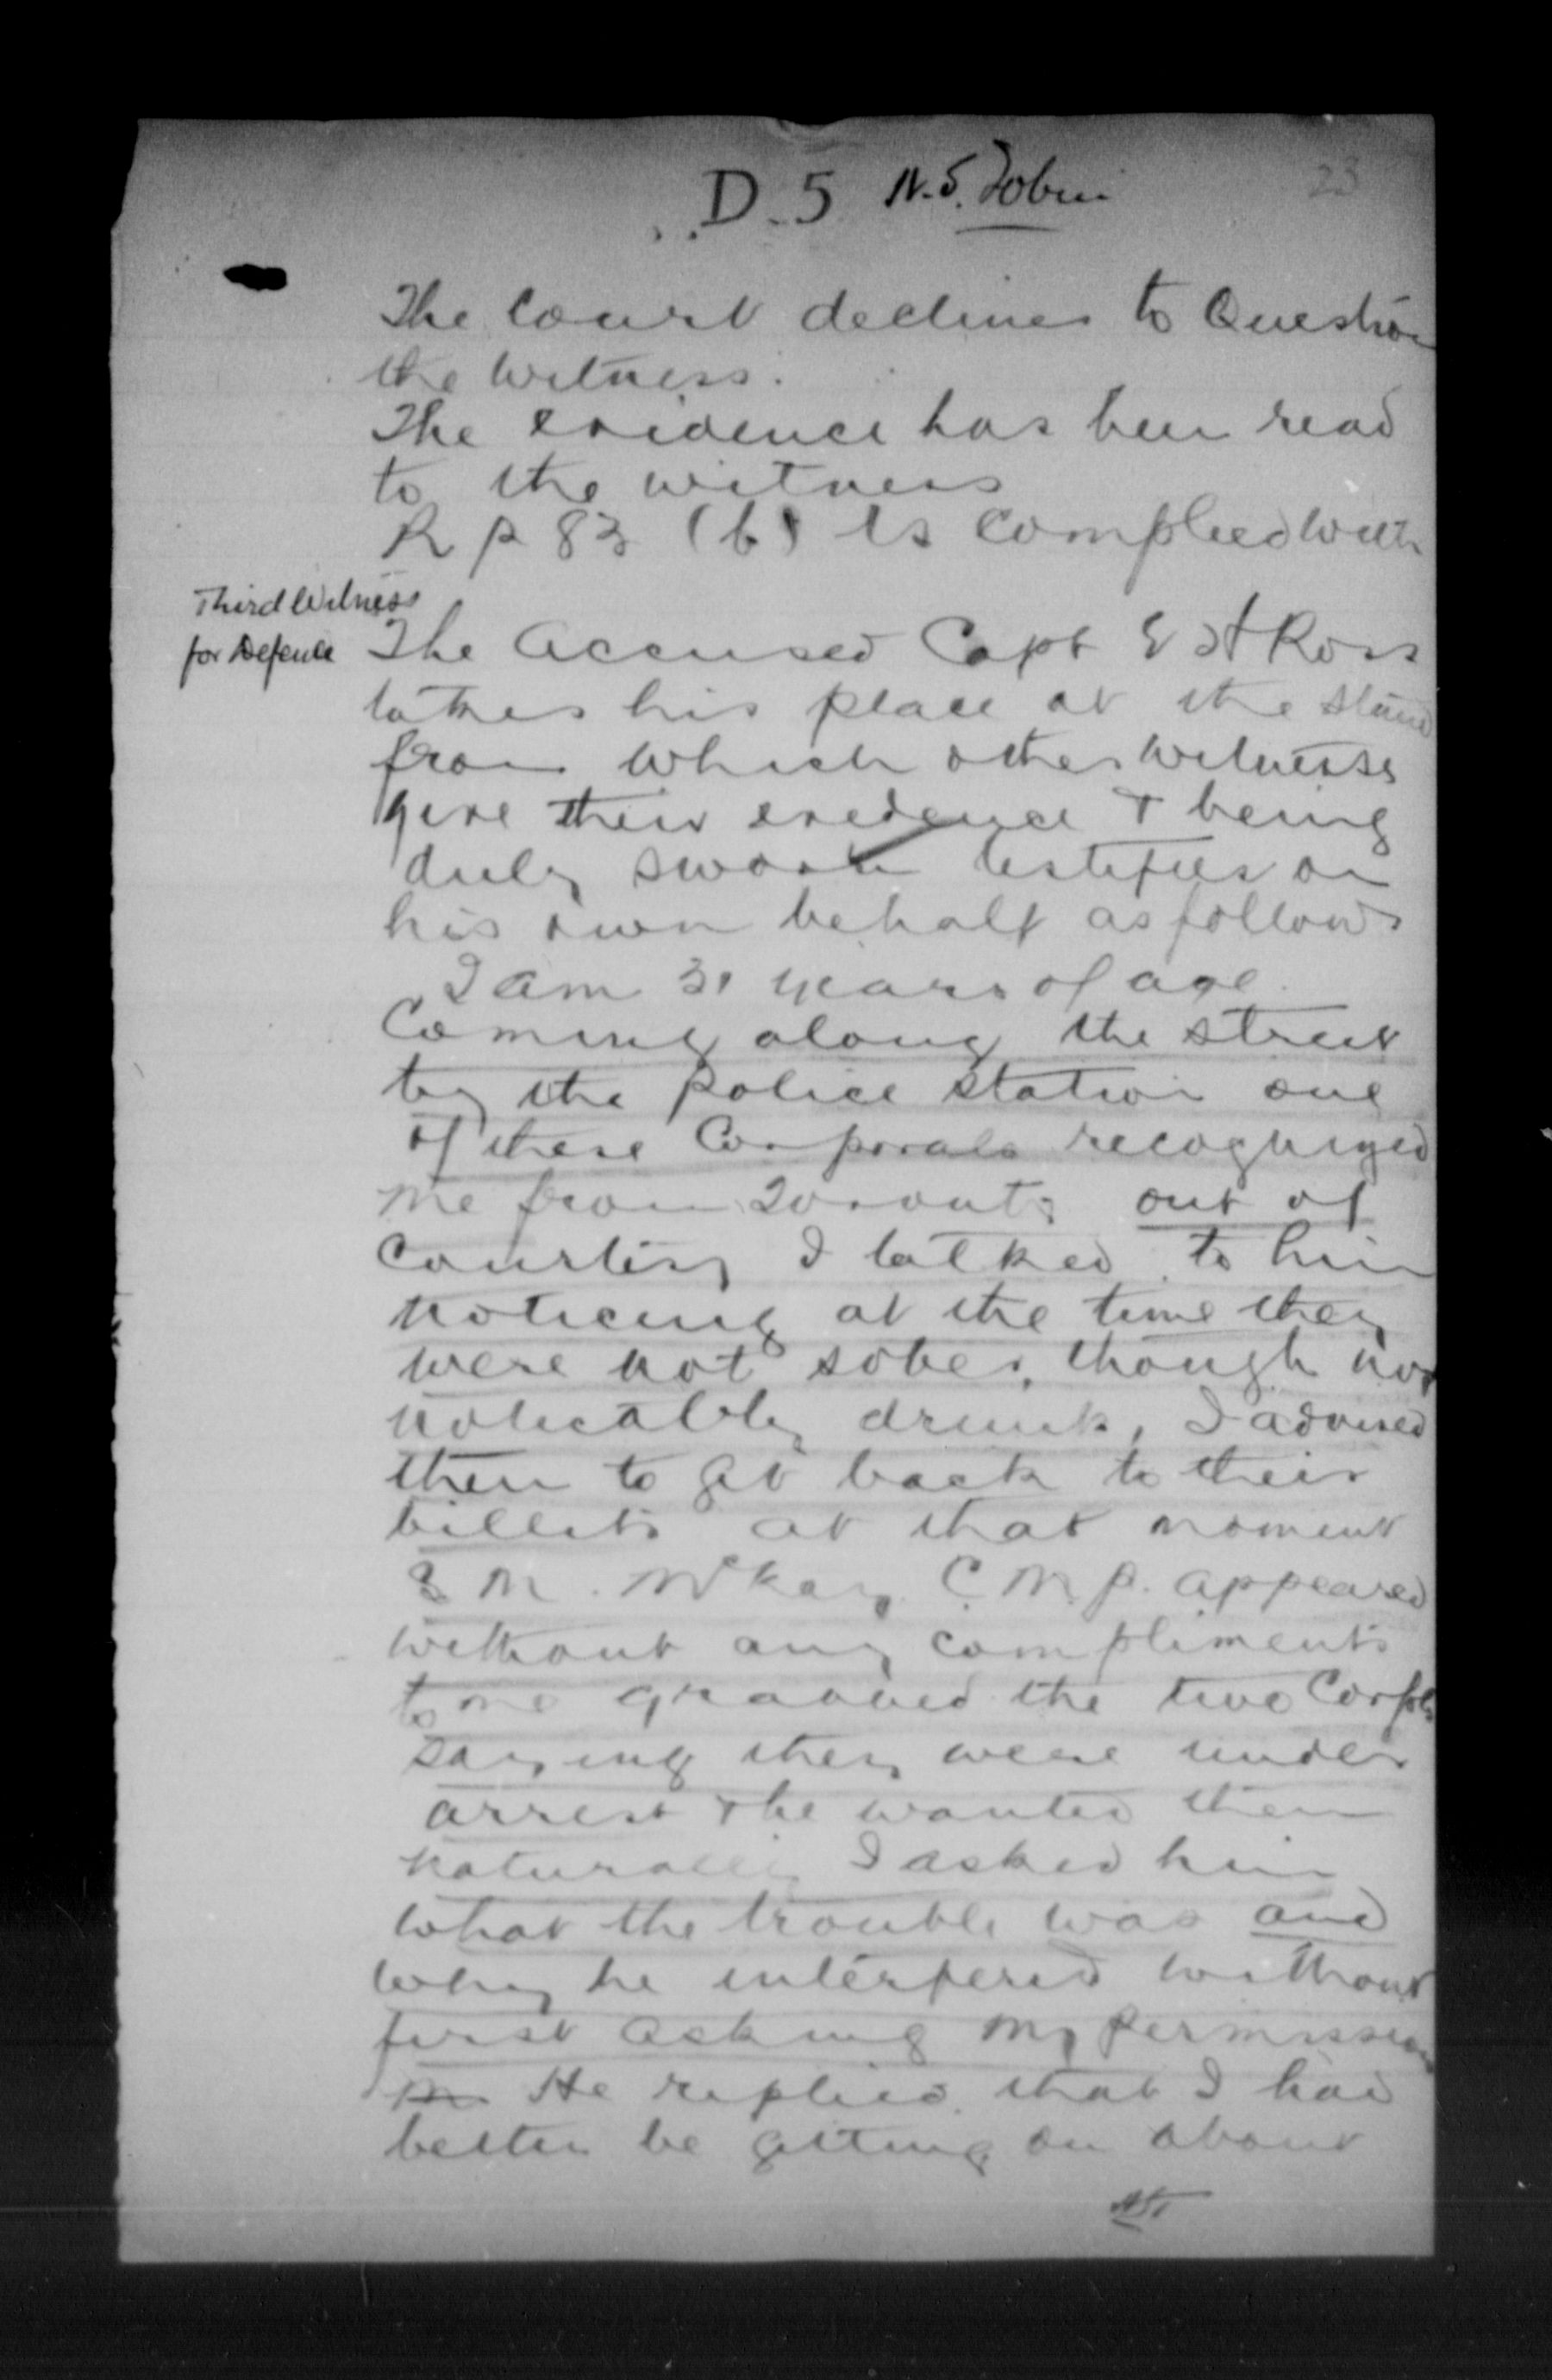 D. 5 N.S. Tobin
23
The Court declines to Question
the witness.
The evidence has been read
to the witness
R P 83 (b) is complied with
Third Witness
for Defence
The accused Capt E A Ross
takes his place at the stand
from which other witnesses
give their evidence & being
duly sworn testifies on
his own behalf as follows
I am 31 years of age.
Coming along the street
by the police station one
of these Corporals recognized
me from Toronto out of
courtesy I talked to him
noticing at the time they
were not sober, though not
noticably drunk, I advised
them to get back to their
billets at that moment
S M. McKay C.M.P. appeared
without any compliments
to me grabbed the two Corpls
saying they were under
arrest & he wanted them
naturally I asked him
what the trouble was and
why he interfered without
first asking my permission
He replied that I had
better be getting on about
NST